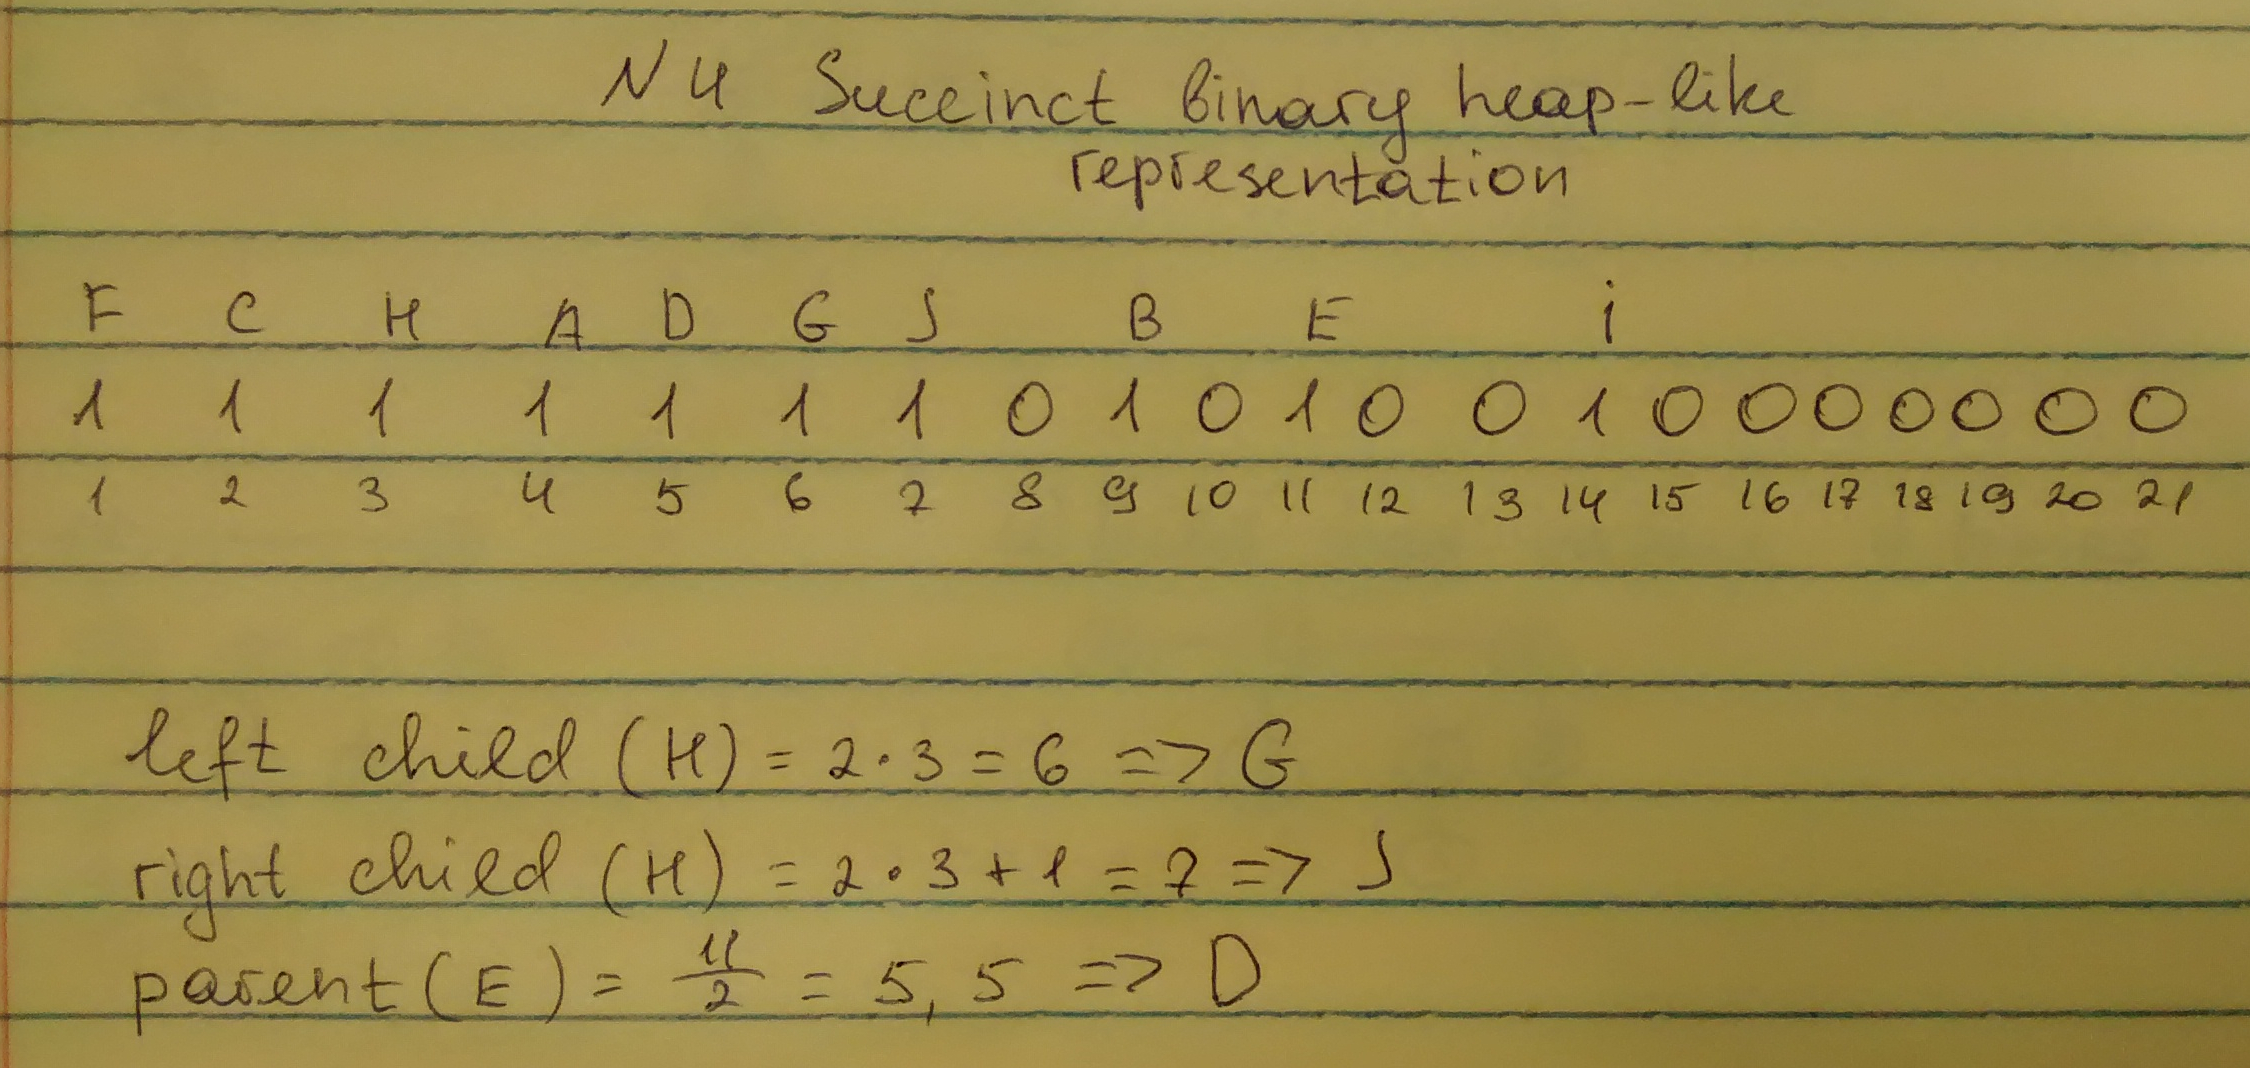 N4 Succinct binary heap-like
representation
F C H A D G J B E i
1 1 1 1 1 1 1 0 1 0 1 0 0 1 0 0 0 0 0 0 0
1 2 3 4 5 6 7 8 9 10 11 12 13 14 15 16 17 18 19 20 21
left child (H) = 2·3 = 6 => G
right child (H) = 2·3+1 = 7 => J
parent (E) = 11/2 = 5,5 => D